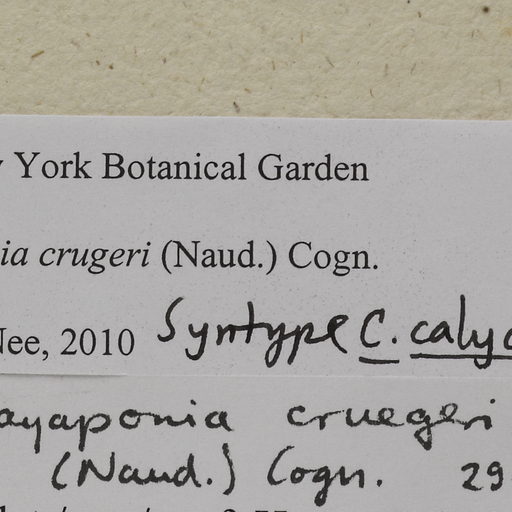 York Botanical Garden
ia crugeri (Naud.) Cogn.
Nee, 2010 Syntype C. calyc
ayaponia cruegeri
(Naud.) Cogn. 29